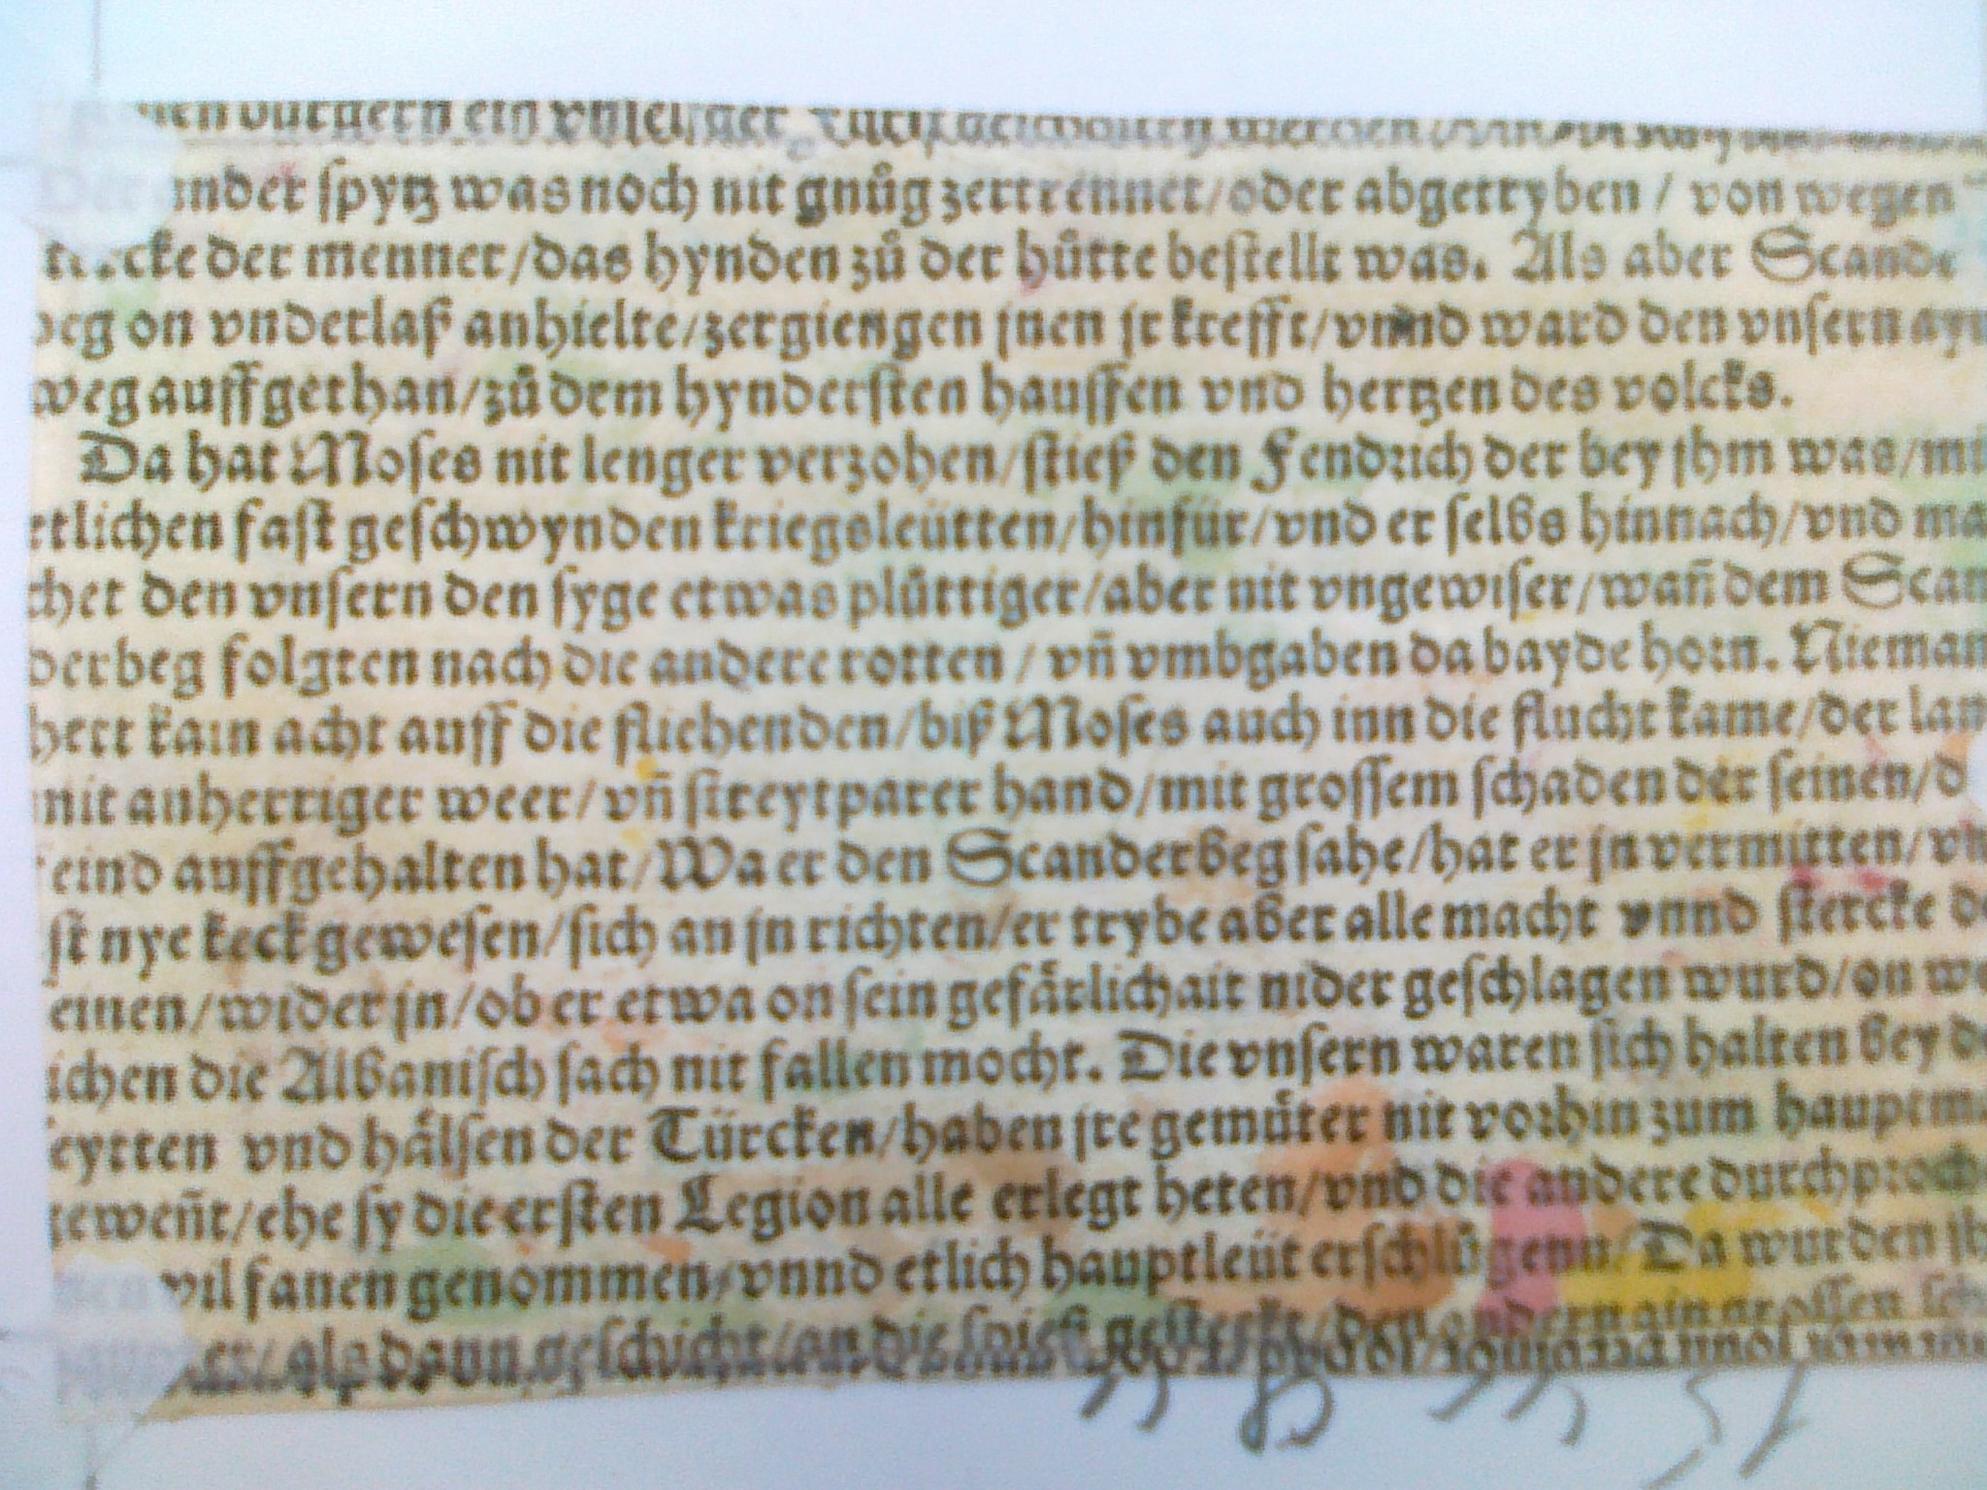 ander ſpytz was noch nit gnůg zertrennet/oder abgetryben / von wegen
der menner/das hynden zů der hůtte beſtellt was. Als aber Scande
beg on vnderlaß anhielte/zergiengen jnen jr krefft/vnnd ward den vnſern ayn
weg auffgethan/zů dem hynderſten hauffen vnd hertzen des volcks.
Da hat Moſes nit lenger verzohen/ſtieß den Fendrich der bey jhm was/mit
etlichen faſt geſchwynden kriegsleütten/hinfür/vnd er ſelbs hinnach/vnd ma
chet den vnſern den ſyge etwas plůttiger/aber nit vngewiſer/wañ dem Scan
derbeg folgten nach die andere rotten / vñ vmbgaben da bayde horn. Nieman
hett kain acht auff die fliehenden/biß Moſes auch inn die flucht kame/der lan
mit anherriger weer/vñ ſtreytparer hand/mit groſſem ſchaden der ſeinen/d
eind auffgehalten hat/Wa er den Scanderbeg ſahe/hat er jn vermitten/vn
iſt nye keck geweſen/ſich an jn richten/er trybe aber alle macht vnnd ſtercke d
einen/wider jn/ob er etwa on ſein gefårlichait nider geſchlagen wurd/on we
ichen die Albaniſch ſach nit fallen mocht. Die vnſern waren ſich halten bey d
eytten vnd hålſen der Türcken/haben jre gemůter nit vorhin zum hauptm
geweñt/ehe ſy die erſten Legion alle erlegt heten/vnd die andere durchproch
vil fanen genommen/vnnd etlich hauptleüt erſchlůgenn/Da wurden jh
alß dann geſchicht/an die ſpieß geſteckt/den andern ain groſſen ſch